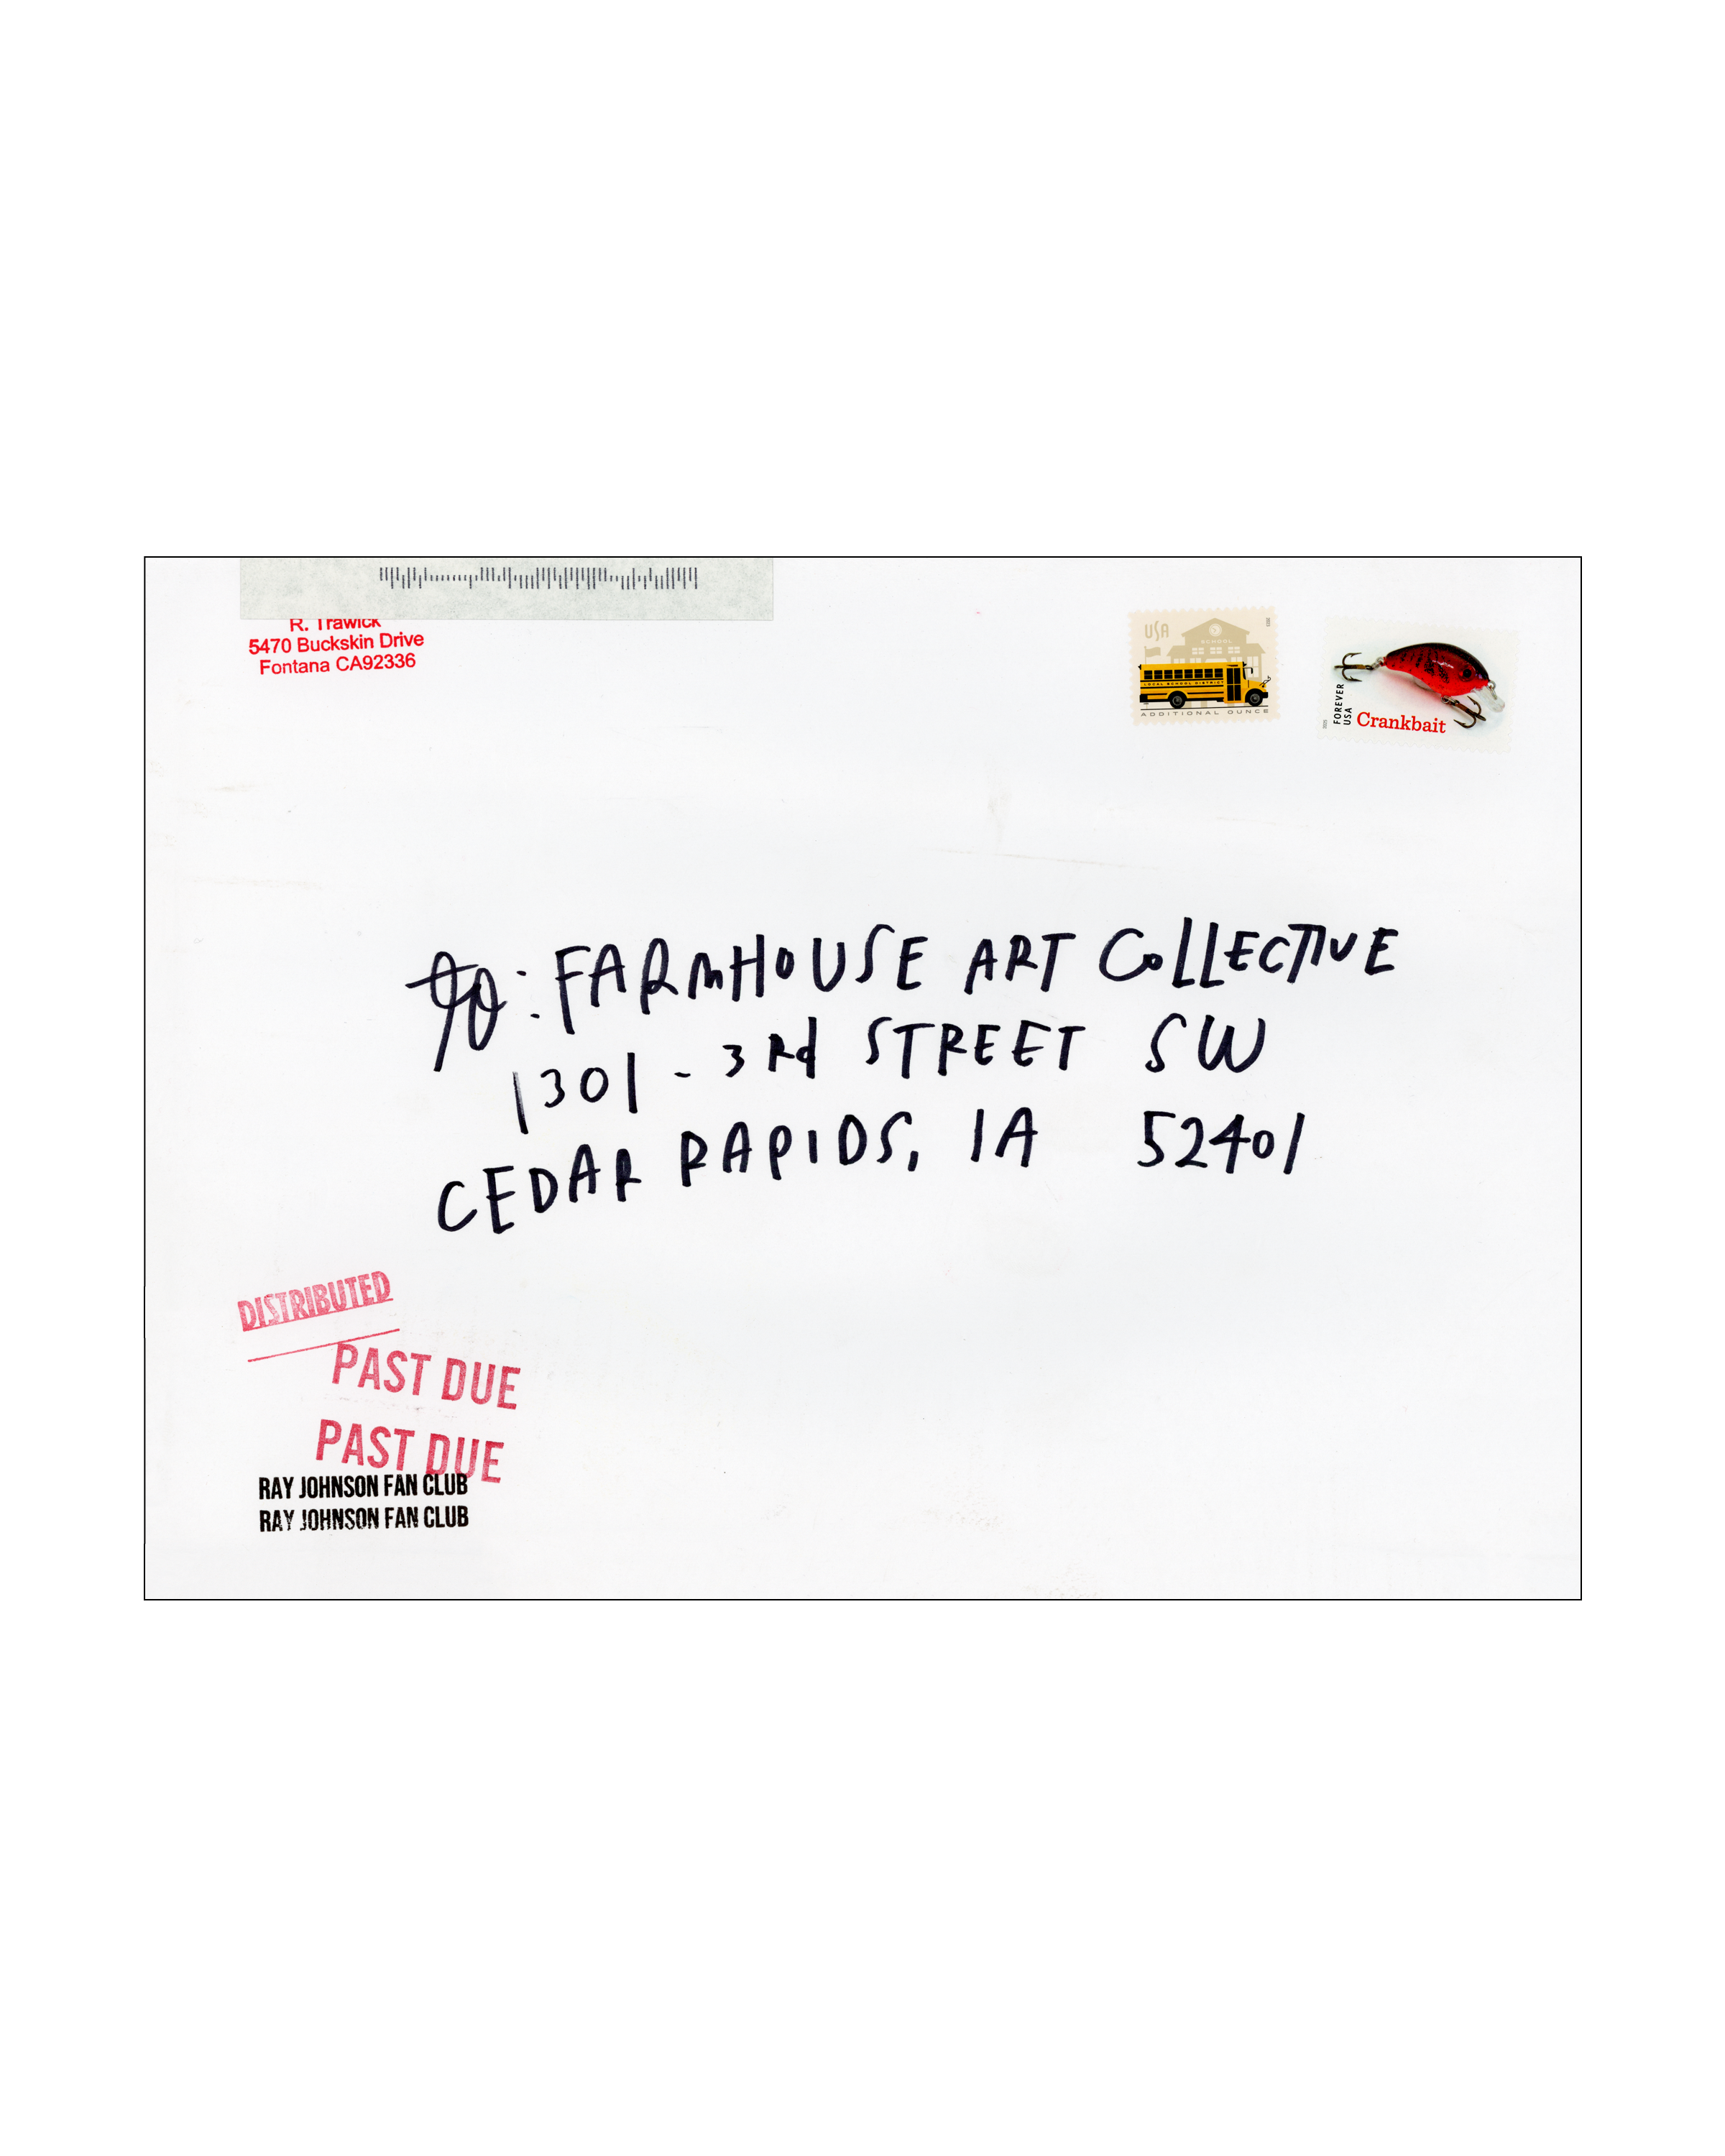 R. Trawick
5470 Buckskin Drive
Fontana CA92336
USA
SCHOOL
LOCAL SCHOOL DISTRICT
ADDITIONAL OUNCE
FOREVER
USA
Crankbait
to: FARMHOUSE ART COLLECTIVE
1301 - 3Rd STREET SW
CEDAR RAPIDS, IA 52401
DISTRIBUTED
PAST DUE
PAST DUE
RAY JOHNSON FAN CLUB
RAY JOHNSON FAN CLUB